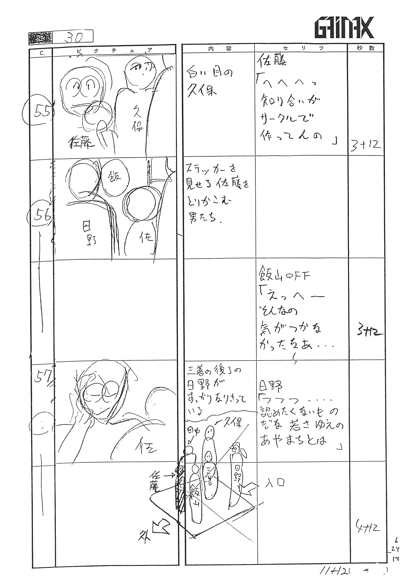 30
GAINAX
C.
ピクチュア
内容
セリフ
秒数
55
佐藤
久保
白い目の
久保
佐藤
「へへへっ
知り合いが
サークルで
作ってんの」
3+12
56
飯
日野
佐
ステッカーを
見せる佐藤を
とりかこむ
男たち.
飯山OFF
「えっへー
そんなの
気がつかな
かったなあ・・・
3+12
57
佐
三善の後ろの
日野が
すっかりなりきって
いる
日野
「フフフ・・・・
認めたくないもの
だな 若さゆえの
あやまちとは」
久保
田中
日野
佐藤
入口
外
4+12
11+12